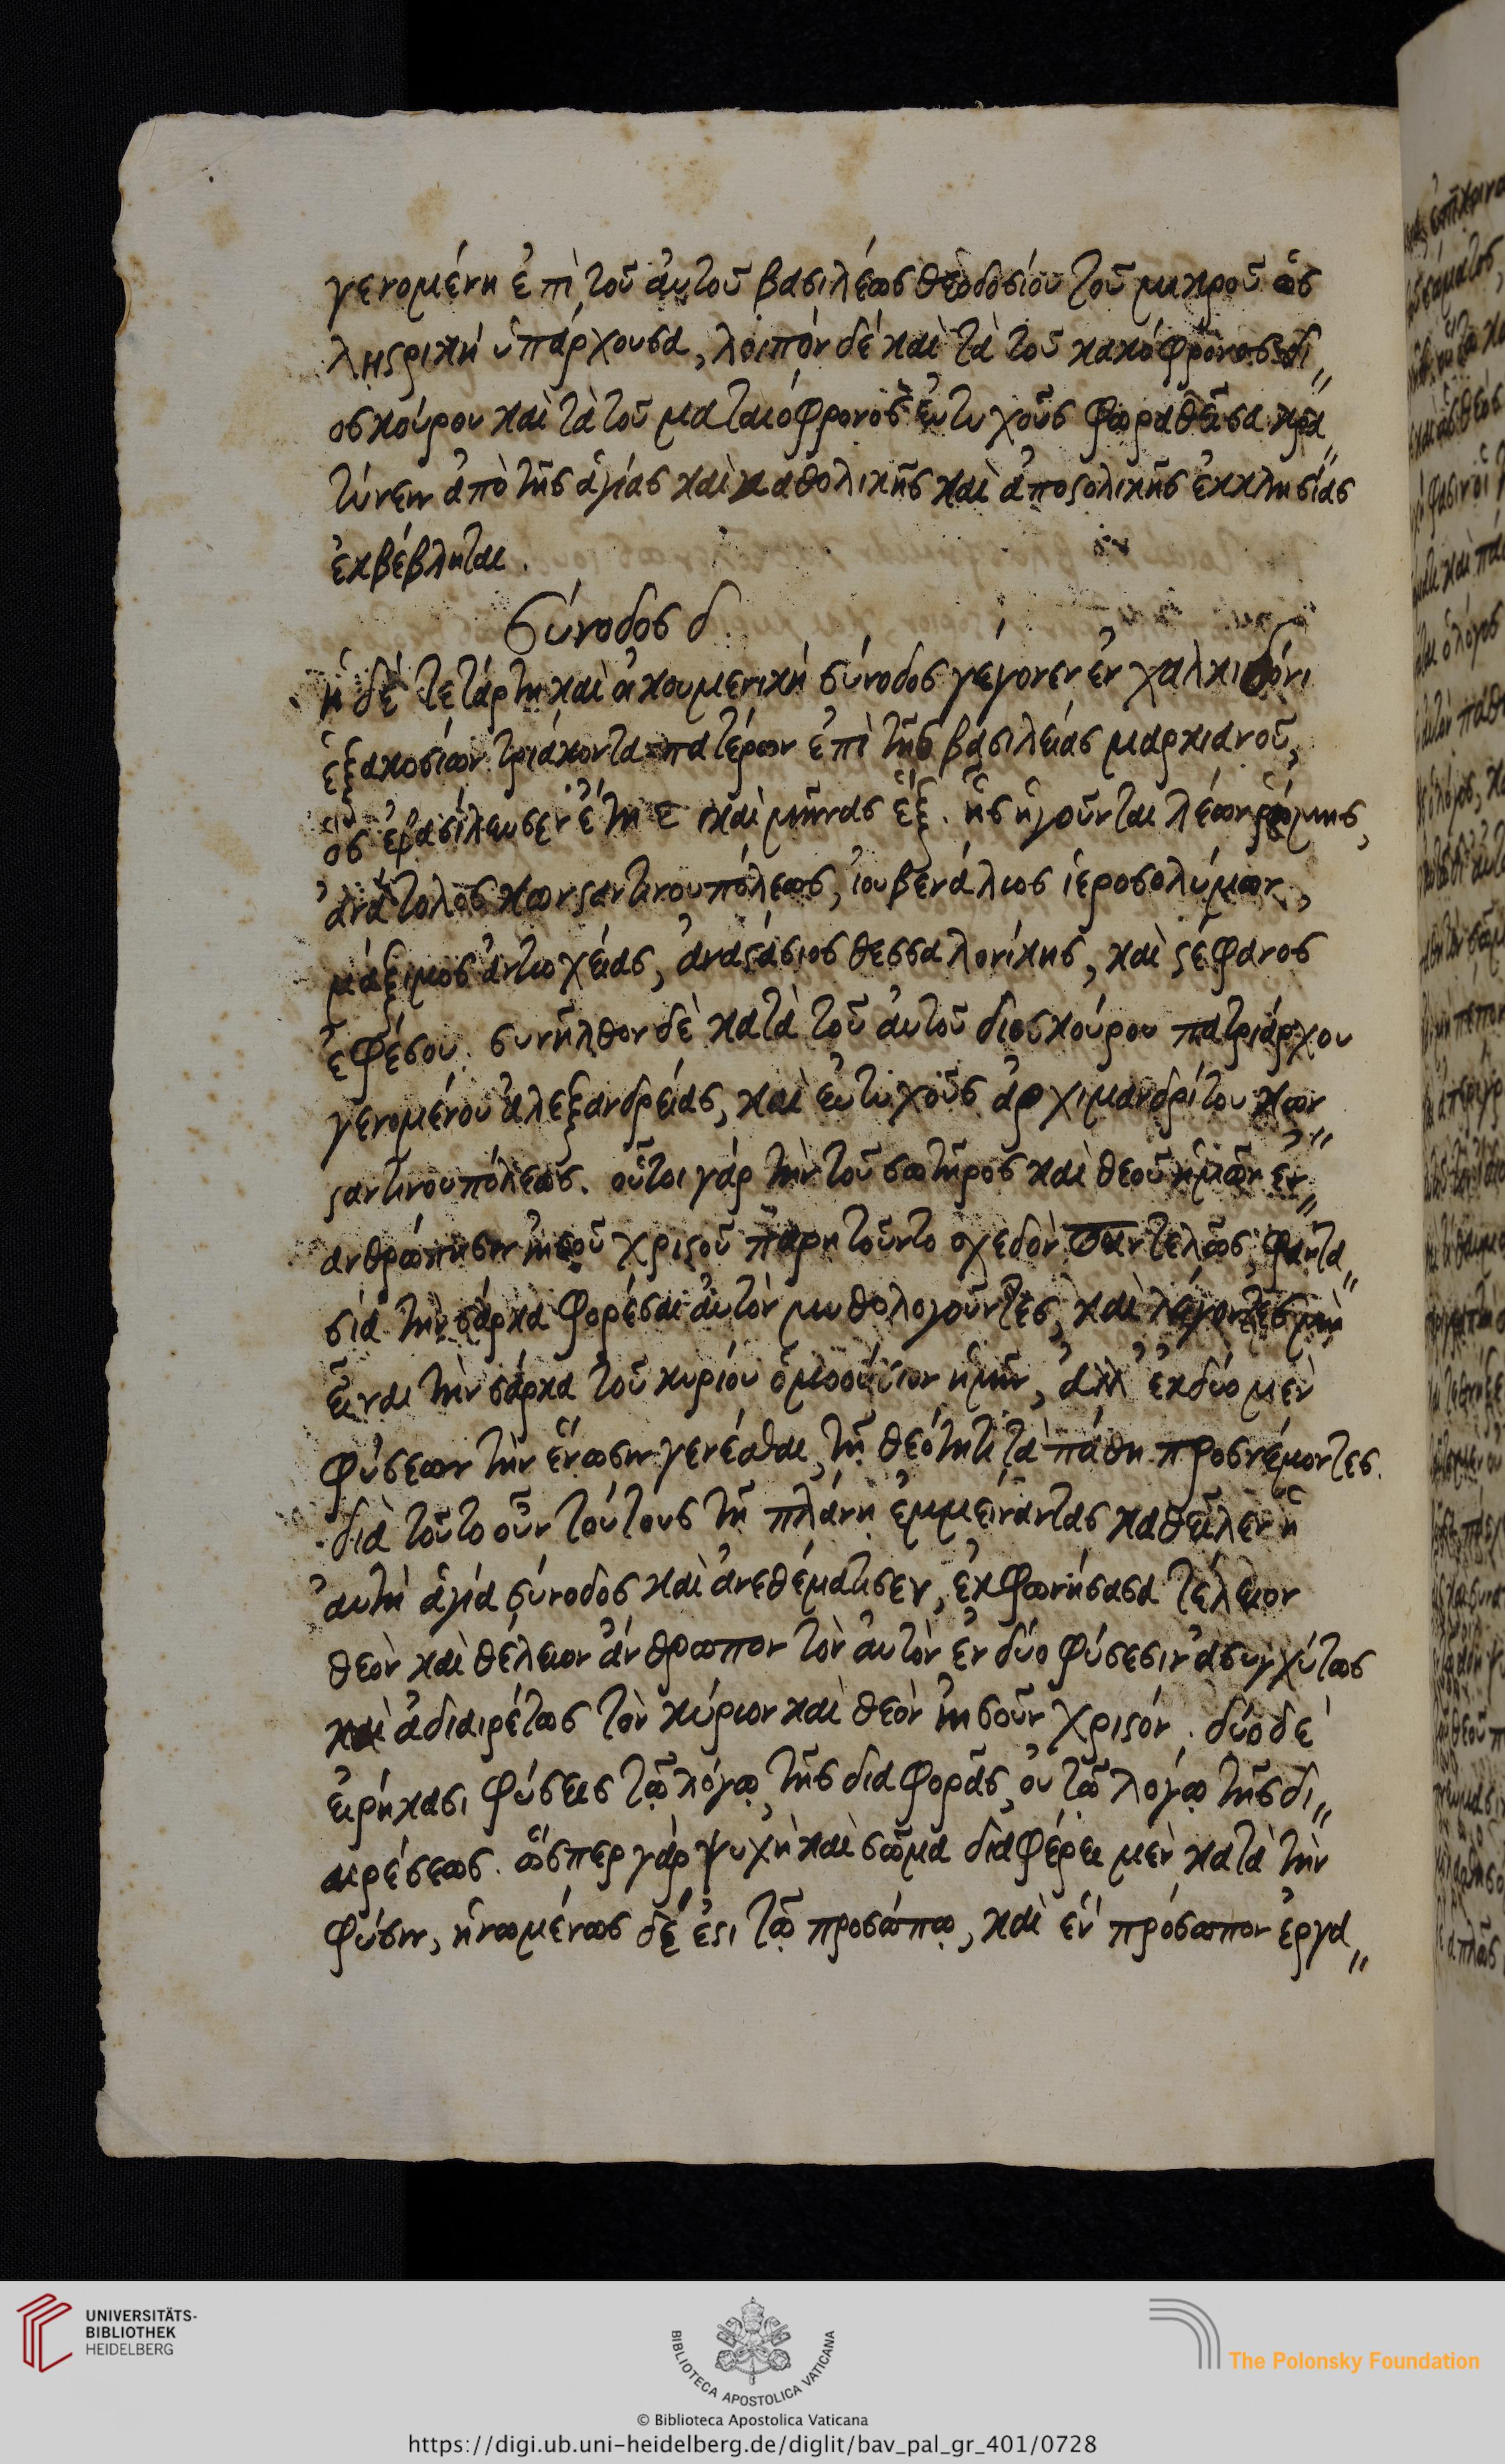 γενομένη ἐπὶ τοῦ αὐτοῦ βασιλέως θεοδοσίου τοῦ μικροῦ ὡς
ληςρικὴ ὑπάρχουσα, λοιπὸν δέ καὶ τὰ τοῦ κακόφρονος δι〃
οσκούρου καὶ τὰ τοῦ ματαιόφρονος εὐτυχοῦς φωραθεῖσα κρα〃
τύνειν ἀπὸ τῆς ἁγίας καὶ καθολικῆς καὶ ἀποςολικῆς ἐκκλησίας
ἐκβέβληται.
Σύνοδος δ
ἡ δὲ τετάρτη καὶ οἰκουμενικὴ σύνοδος γέγονεν ἐν χαλκιδόνι
ἑξακοσίων τριάκοντα πατέρων ἐπὶ τῆς βασιλείας μαρκιανοῦ,
ὃς ἐβασίλευσεν ἔτη ε καὶ μῆνας ἓξ. ἧς ἡγοῦνται λέων ῥώμης,
ἀνατολος κωνςαντινουπόλεως, ἰουβενάλιος ἱεροσολύμων,
μάξιμος ἀντιοχείας, ἀναςάσιος θεσσαλονίκης, καὶ ςέφανος
ἐφέσου. συνῆλθον δὲ κατὰ τοῦ αὐτοῦ διοσκούρου πατριάρχου
γενομένου ἀλεξανδρείας, καὶ εὐτυχοῦς ἀρχιμανδρίτου κων〃
ςαντινουπόλεως. οὗτοι γάρ τὴν τοῦ σωτῆρος καὶ θεοῦ ἡμῶν ἐν〃
ανθρώπησιν ἰησοῦ χριςοῦ παρητοῦντο σχεδὸν παντελῶς, φαντα〃
σία τὴν σάρκα φορέσαι αὐτὸν μυθολογοῦντες, καὶ λέγοντες μὴ
εἶναι τὴν σάρκα τοῦ κυρίου ὁμοούσιον ἡμῖν, ἀλλ' ἐκ δύο μὲν
φύσεων τὴν ἕνωσιν γενέσθαι, τῇ θεότητι τὰ πάθη προσνέμοντες.
διὰ τοῦτο οὖν τούτους τῇ πλάνῃ ἐμμείναντας καθεῖλεν ἡ
αὐτὴ ἁγία σύνοδος καὶ ἀνεθέματισεν, ἐκφωνήσασα τέλειον
θεὸν καὶ θέλειον ἄνθρωπον τὸν αὐτὸν ἐν δύο φύσεσιν ἀσυγχύτως
καὶ ἀδιαιρέτως τὸν κύριον καὶ θεὸν ἰησοῦν χριςόν. δύο δὲ
εἰρήκασι φύσεις τῷ λόγῳ τῆς διαφορᾶς, οὐ τῷ λόγῳ τῆς δι〃
αιρέσεως. ὥσπερ γὰρ ψυχὴ καὶ σῶμα διαφέρει μὲν κατὰ τὴν
φύσιν, ἡνωμένως δέ ἐςι τῷ προσώπῳ, καὶ ἓν πρόσωπον ἐργα〃
UNIVERSITÄTS-
BIBLIOTHEK
HEIDELBERG
BIBLIOTECA APOSTOLICA VATICANA
The Polonsky Foundation
© Biblioteca Apostolica Vaticana
https://digi.ub.uni-heidelberg.de/diglit/bav_pal_gr_401/0728